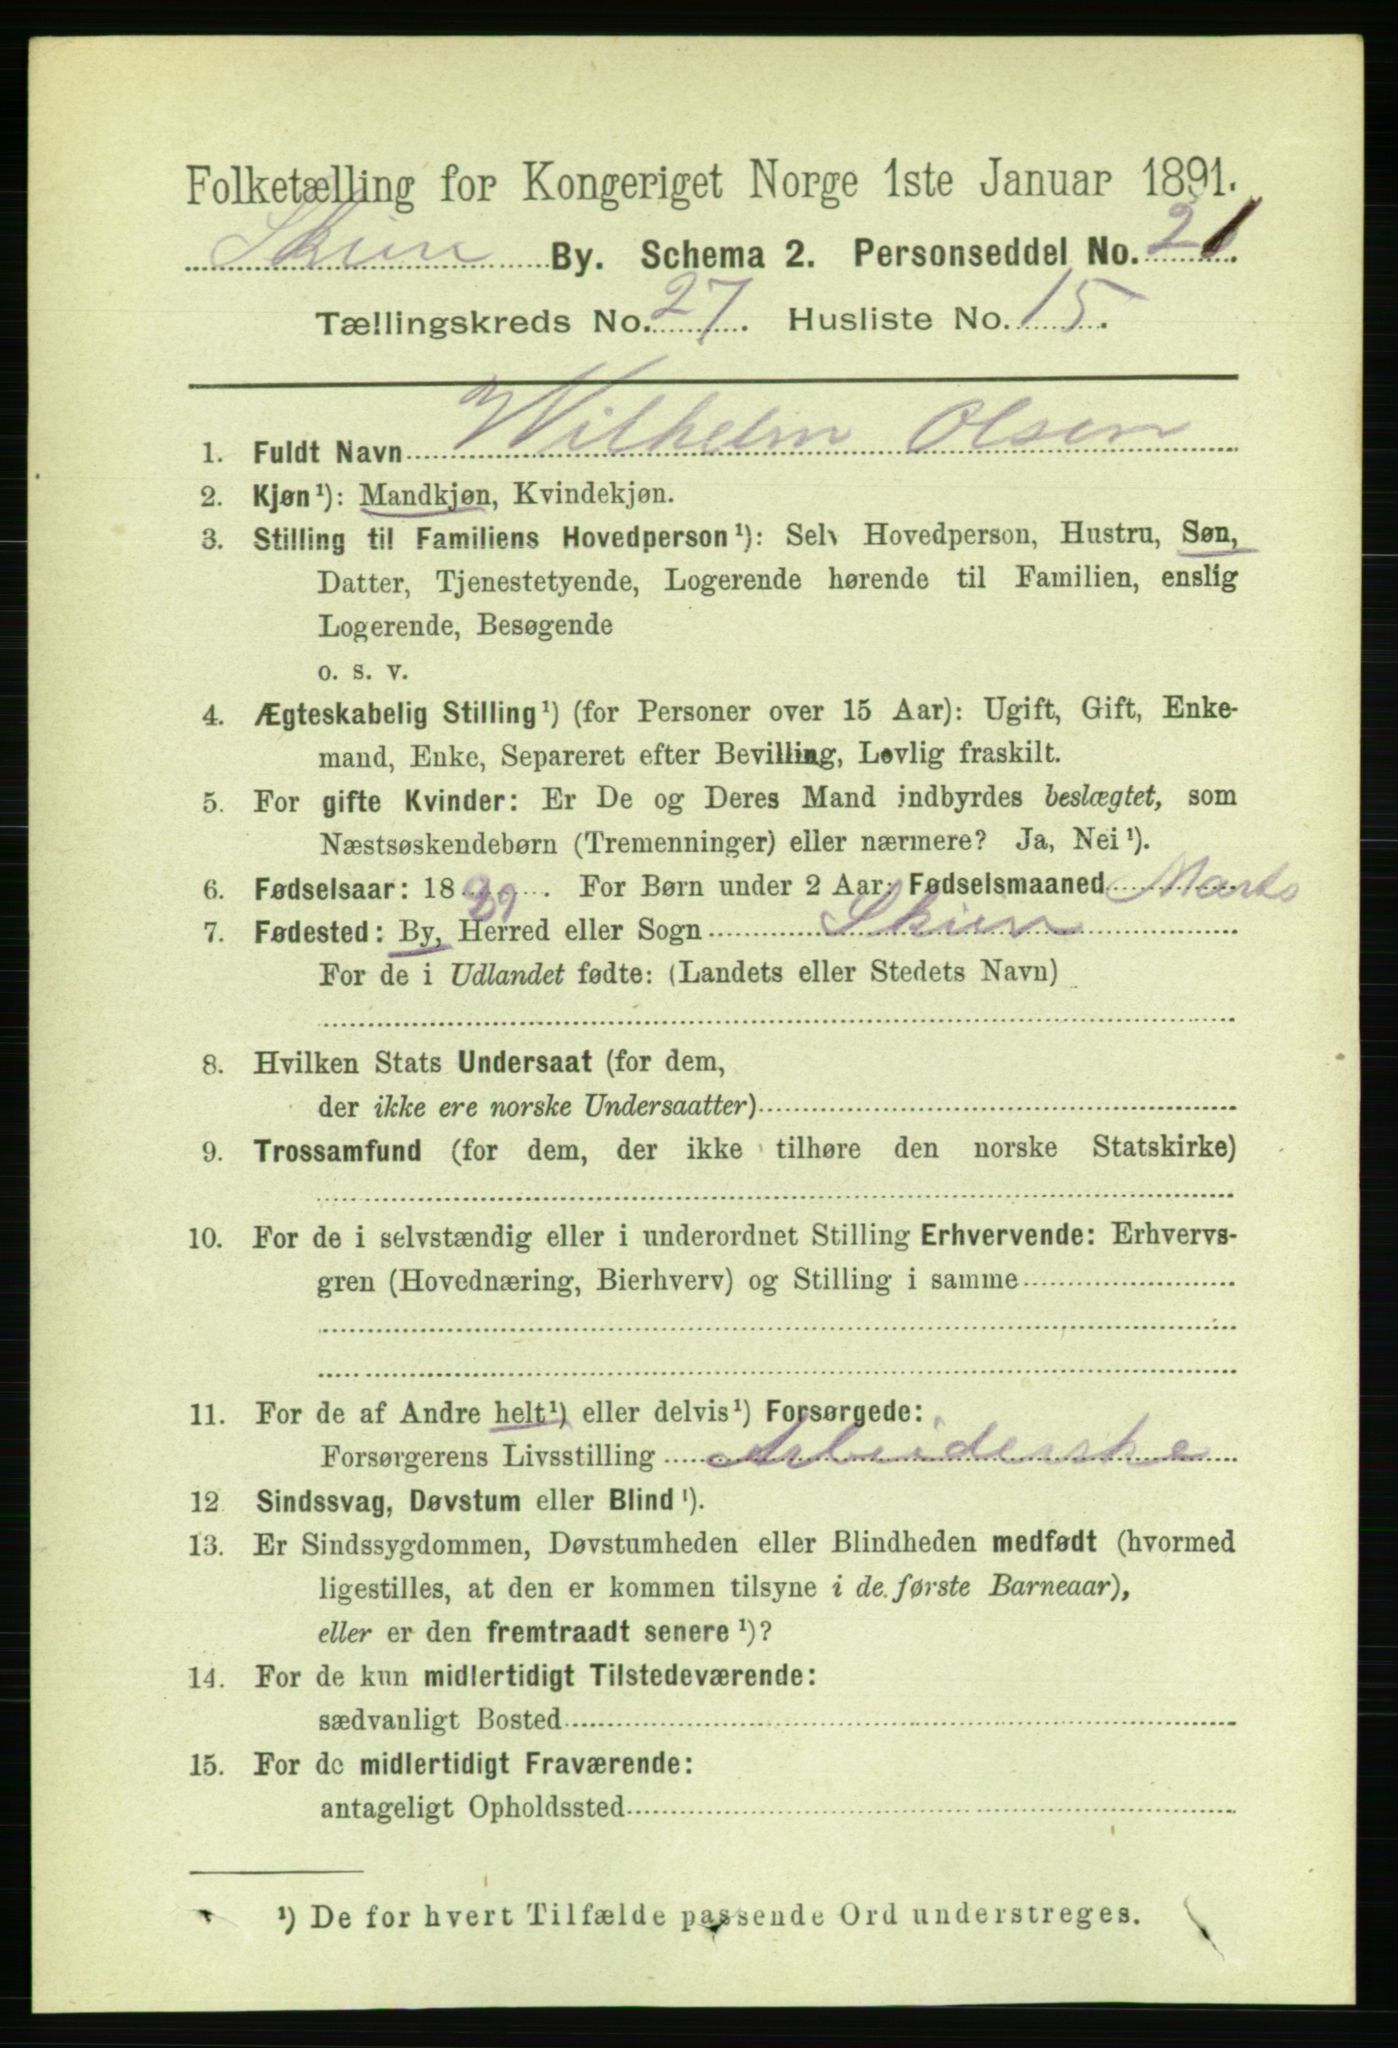 Folketælling for Kongeriget Norge 1ste Januar 1891.
Skien By. Schema 2. Personseddel No. 21.
Tællingskreds No. 27. Husliste No. 15.
1. Fuldt Navn Wilhelm Olsen
2. Kjøn¹): Mandkjøn, Kvindekjøn.
3. Stilling til Familiens Hovedperson¹): Selv Hovedperson, Hustru, Søn,
Datter, Tjenestetyende, Logerende hørende til Familien, enslig
Logerende, Besøgende
o. s. v.
4. Ægteskabelig Stilling¹) (for Personer over 15 Aar): Ugift, Gift, Enke-
mand, Enke, Separeret efter Bevilling, Lovlig fraskilt.
5. For gifte Kvinder: Er De og Deres Mand indbyrdes beslægtet, som
Næstsøskendebørn (Tremenninger) eller nærmere? Ja, Nei¹).
6. Fødselsaar: 1889. For Børn under 2 Aar: Fødselsmaaned Marts
7. Fødested: By, Herred eller Sogn Skien
For de i Udlandet fødte: (Landets eller Stedets Navn)
8. Hvilken Stats Undersaat (for dem,
der ikke ere norske Undersaatter)
9. Trossamfund (for dem, der ikke tilhøre den norske Statskirke)
10. For de i selvstændig eller i underordnet Stilling Erhvervende: Erhvervs-
gren (Hovednæring, Bierhverv) og Stilling i samme
11. For de af Andre helt¹) eller delvis¹) Forsørgede:
Forsørgerens Livsstilling Arbeiderske
12 Sindssvag, Døvstum eller Blind¹).
13. Er Sindssygdommen, Døvstumheden eller Blindheden medfødt (hvormed
ligestilles, at den er kommen tilsyne i de første Barneaar),
eller er den fremtraadt senere¹)?
14. For de kun midlertidigt Tilstedeværende:
sædvanligt Bosted
15. For de midlertidigt Fraværende:
antageligt Opholdssted
¹) De for hvert Tilfælde passende Ord understreges.